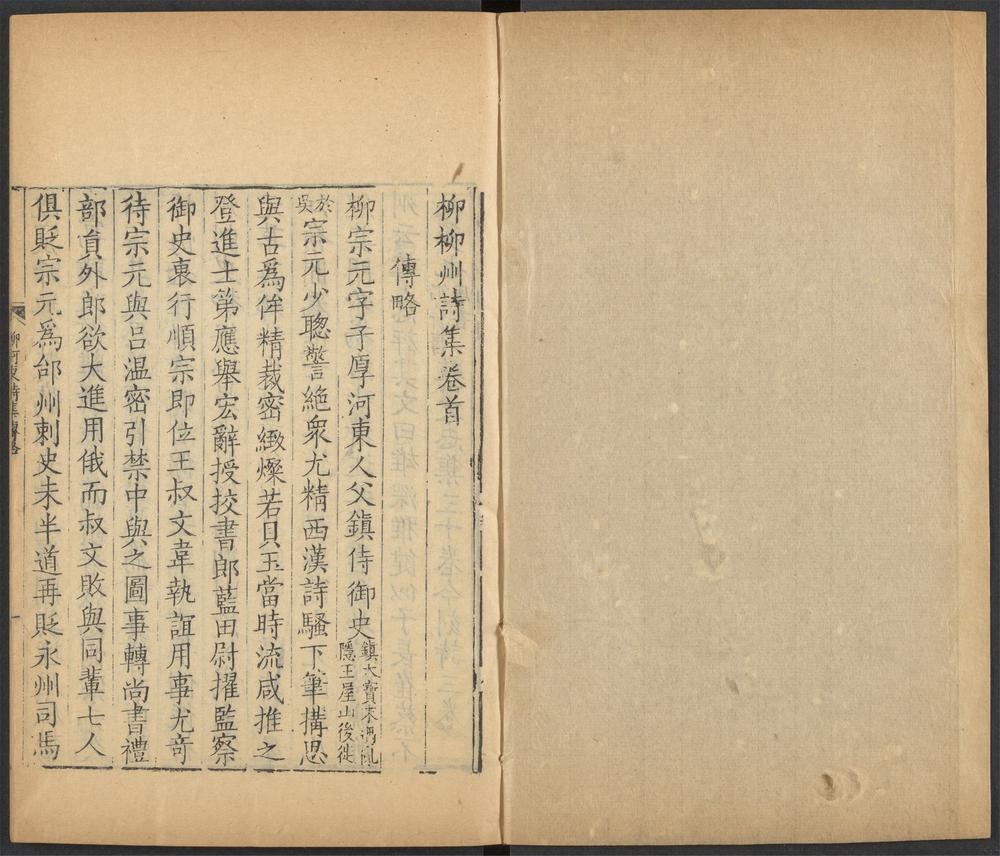 柳柳州詩集卷首
傳略
柳宗元字子厚河東人父鎮侍御史鎮天寶末遇亂隱王屋山後徙
於吳宗元少聰警絶衆尤精西漢詩騷下筆搆思
與古爲侔精裁密緻燦若貝玉當時流咸推之
登進士第應舉宏辭授挍書郎藍田尉擢監察
御史裏行順宗即位王叔文韋執誼用事尤竒
待宗元與吕温密引禁中與之圖事轉尚書禮
部負外郎欲大進用俄而叔文敗與同輩七人
俱貶宗元爲邠州刺史未半道再貶永州司馬
柳河東詩集傳畧
一